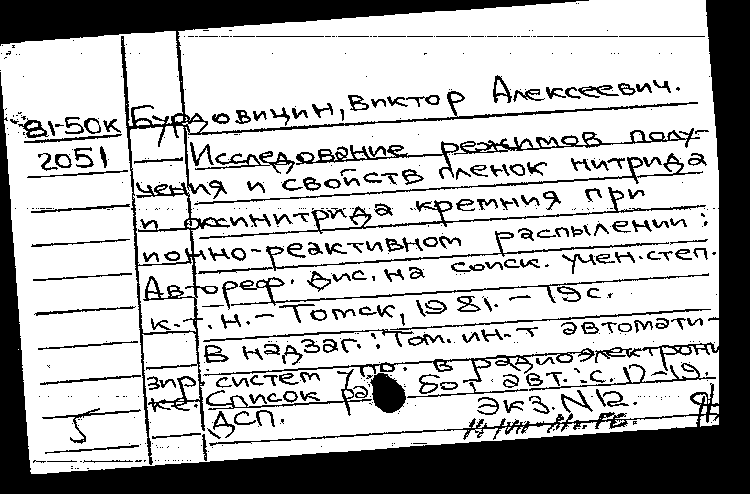 81-50к Бурдовицин, Виктор Алексеевич.
2051 Исследование режимов полу-
чения и свойств пленок нитрида
и оксинитрида кремния при
ионно-реактивном распылении:
Автореф. дис. на соиск. учен. степ.
к.т.н. - Томск, 1981. - 19 с.
В надзаг.: Том. ин-т автомати-
зир. систем упр. в радиоэлектрони
ке. Список работ авт.: с. 17-19.
ДСП. Экз. N 12.
5